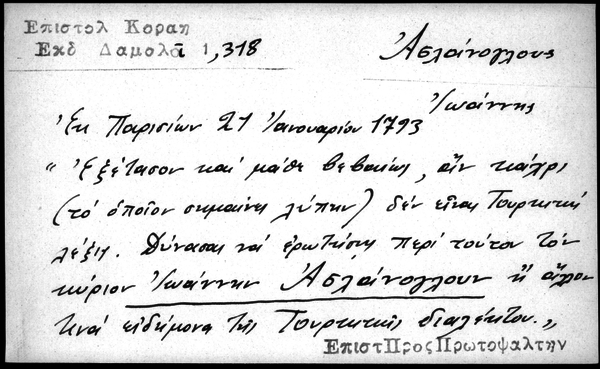 Επιστολ Κοραη
Εκδ Δαμαλᾶ 1,318
Ἀσλάνογλους
Ἰωάννης
Ἐκ Παρισίων 21 Ἰανουαρίου 1793
"Ἐξέτασον καί μάθε βεβαίως, ἄν κάχρι
(τό ὁποῖον σημαίνει λύπην) δέν εἶναι Τουρκική
λέξις. Δύνασαι νά ἐρωτήσῃς περί τούτου τόν
κύριον Ἰωάννην Ἀσλάνογλουν ἤ ἄλλον
τινά εἰδήμονα τῆς Τουρκικῆς διαλέκτου.„
ΕπιστΠροςΠρωτοψαλτην